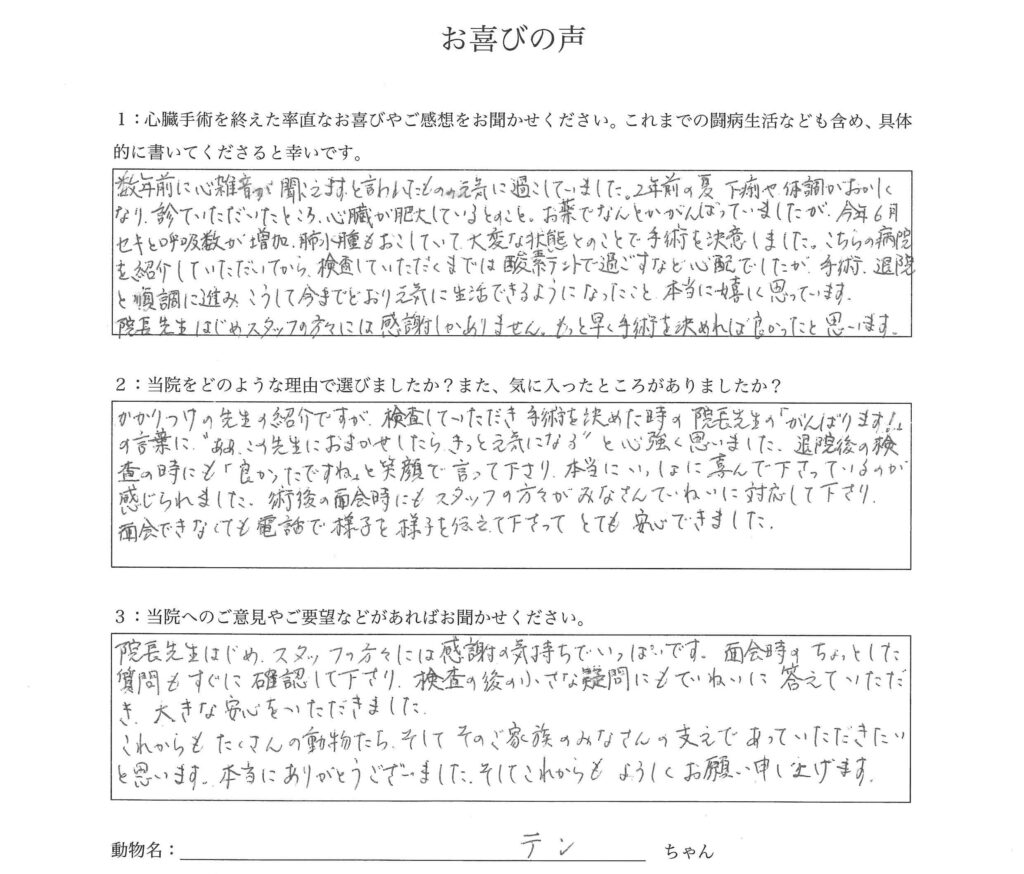 お喜びの声
1：心臓手術を終えた率直なお喜びやご感想をお聞かせください。これまでの闘病生活なども含め、具体
的に書いてくださると幸いです。
数年前に心雑音が聞こえますと言われたものの元気に過ごしていました。2年前の夏 下痢や体調がおかしく
なり、診ていただいたところ、心臓が肥大しているとのこと。お薬でなんとかがんばっていましたが、今年6月
セキと呼吸数が増加、肺水腫もおこしていて、大変な状態とのことで手術を決意しました。こちらの病院
を紹介していただいてから、検査していただくまでは酸素テントで過ごすなど心配でしたが、手術、退院
と順調に進み、こうして今までどおり元気に生活できるようになったこと、本当に嬉しく思っています。
院長先生はじめスタッフの方々には感謝しかありません。もっと早く手術を決めれば良かったと思います。
2：当院をどのような理由で選びましたか？また、気に入ったところがありましたか？
かかりつけの先生の紹介ですが、検査していただき手術を決めた時の院長先生の「がんばります!」
の言葉に、"ああ、この先生におまかせしたら、きっと元気になる"と心強く思いました。退院後の検
査の時にも「良かったですね」と笑顔で言って下さり、本当にいっしょに喜んで下さっているのが
感じられました。術後の面会時にもスタッフの方々がみなさんていねいに対応して下さり、
面会できなくても電話で様子を様子を伝えて下さって とても安心できました。
3：当院へのご意見やご要望などがあればお聞かせください。
院長先生はじめ、スタッフの方々には感謝の気持ちでいっぱいです。面会時のちょっとした
質問もすぐに確認して下さり、検査の後の小さな疑問にもていねいに答えていただ
き、大きな安心をいただきました。
これからもたくさんの動物たち、そしてそのご家族のみなさんの支えであっていただきたい
と思います。本当にありがとうございました。そしてこれからもよろしくお願い申し上げます。
動物名：テン ちゃん